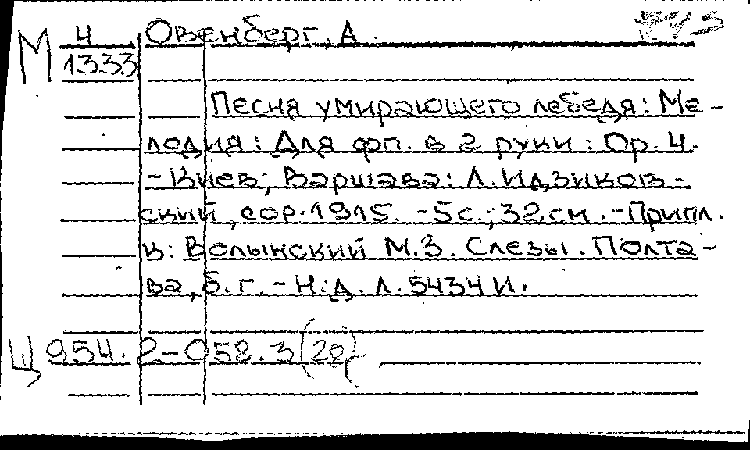 М 4 Овенберг, А.
1333
Песня умирающего лебедя: Ме-
лодия: Для фп. в 2 руки: Ор. 4.
- Киев; Варшава: Л. Идзиков-
ский, cop. 1915. - 5 с.; 32 см. - Припл.
к: Волынский М.З. Слезы. Полта-
ва, б.г. - Н.д. Л. 5434 И.
Ц 954. 2-058.3(28